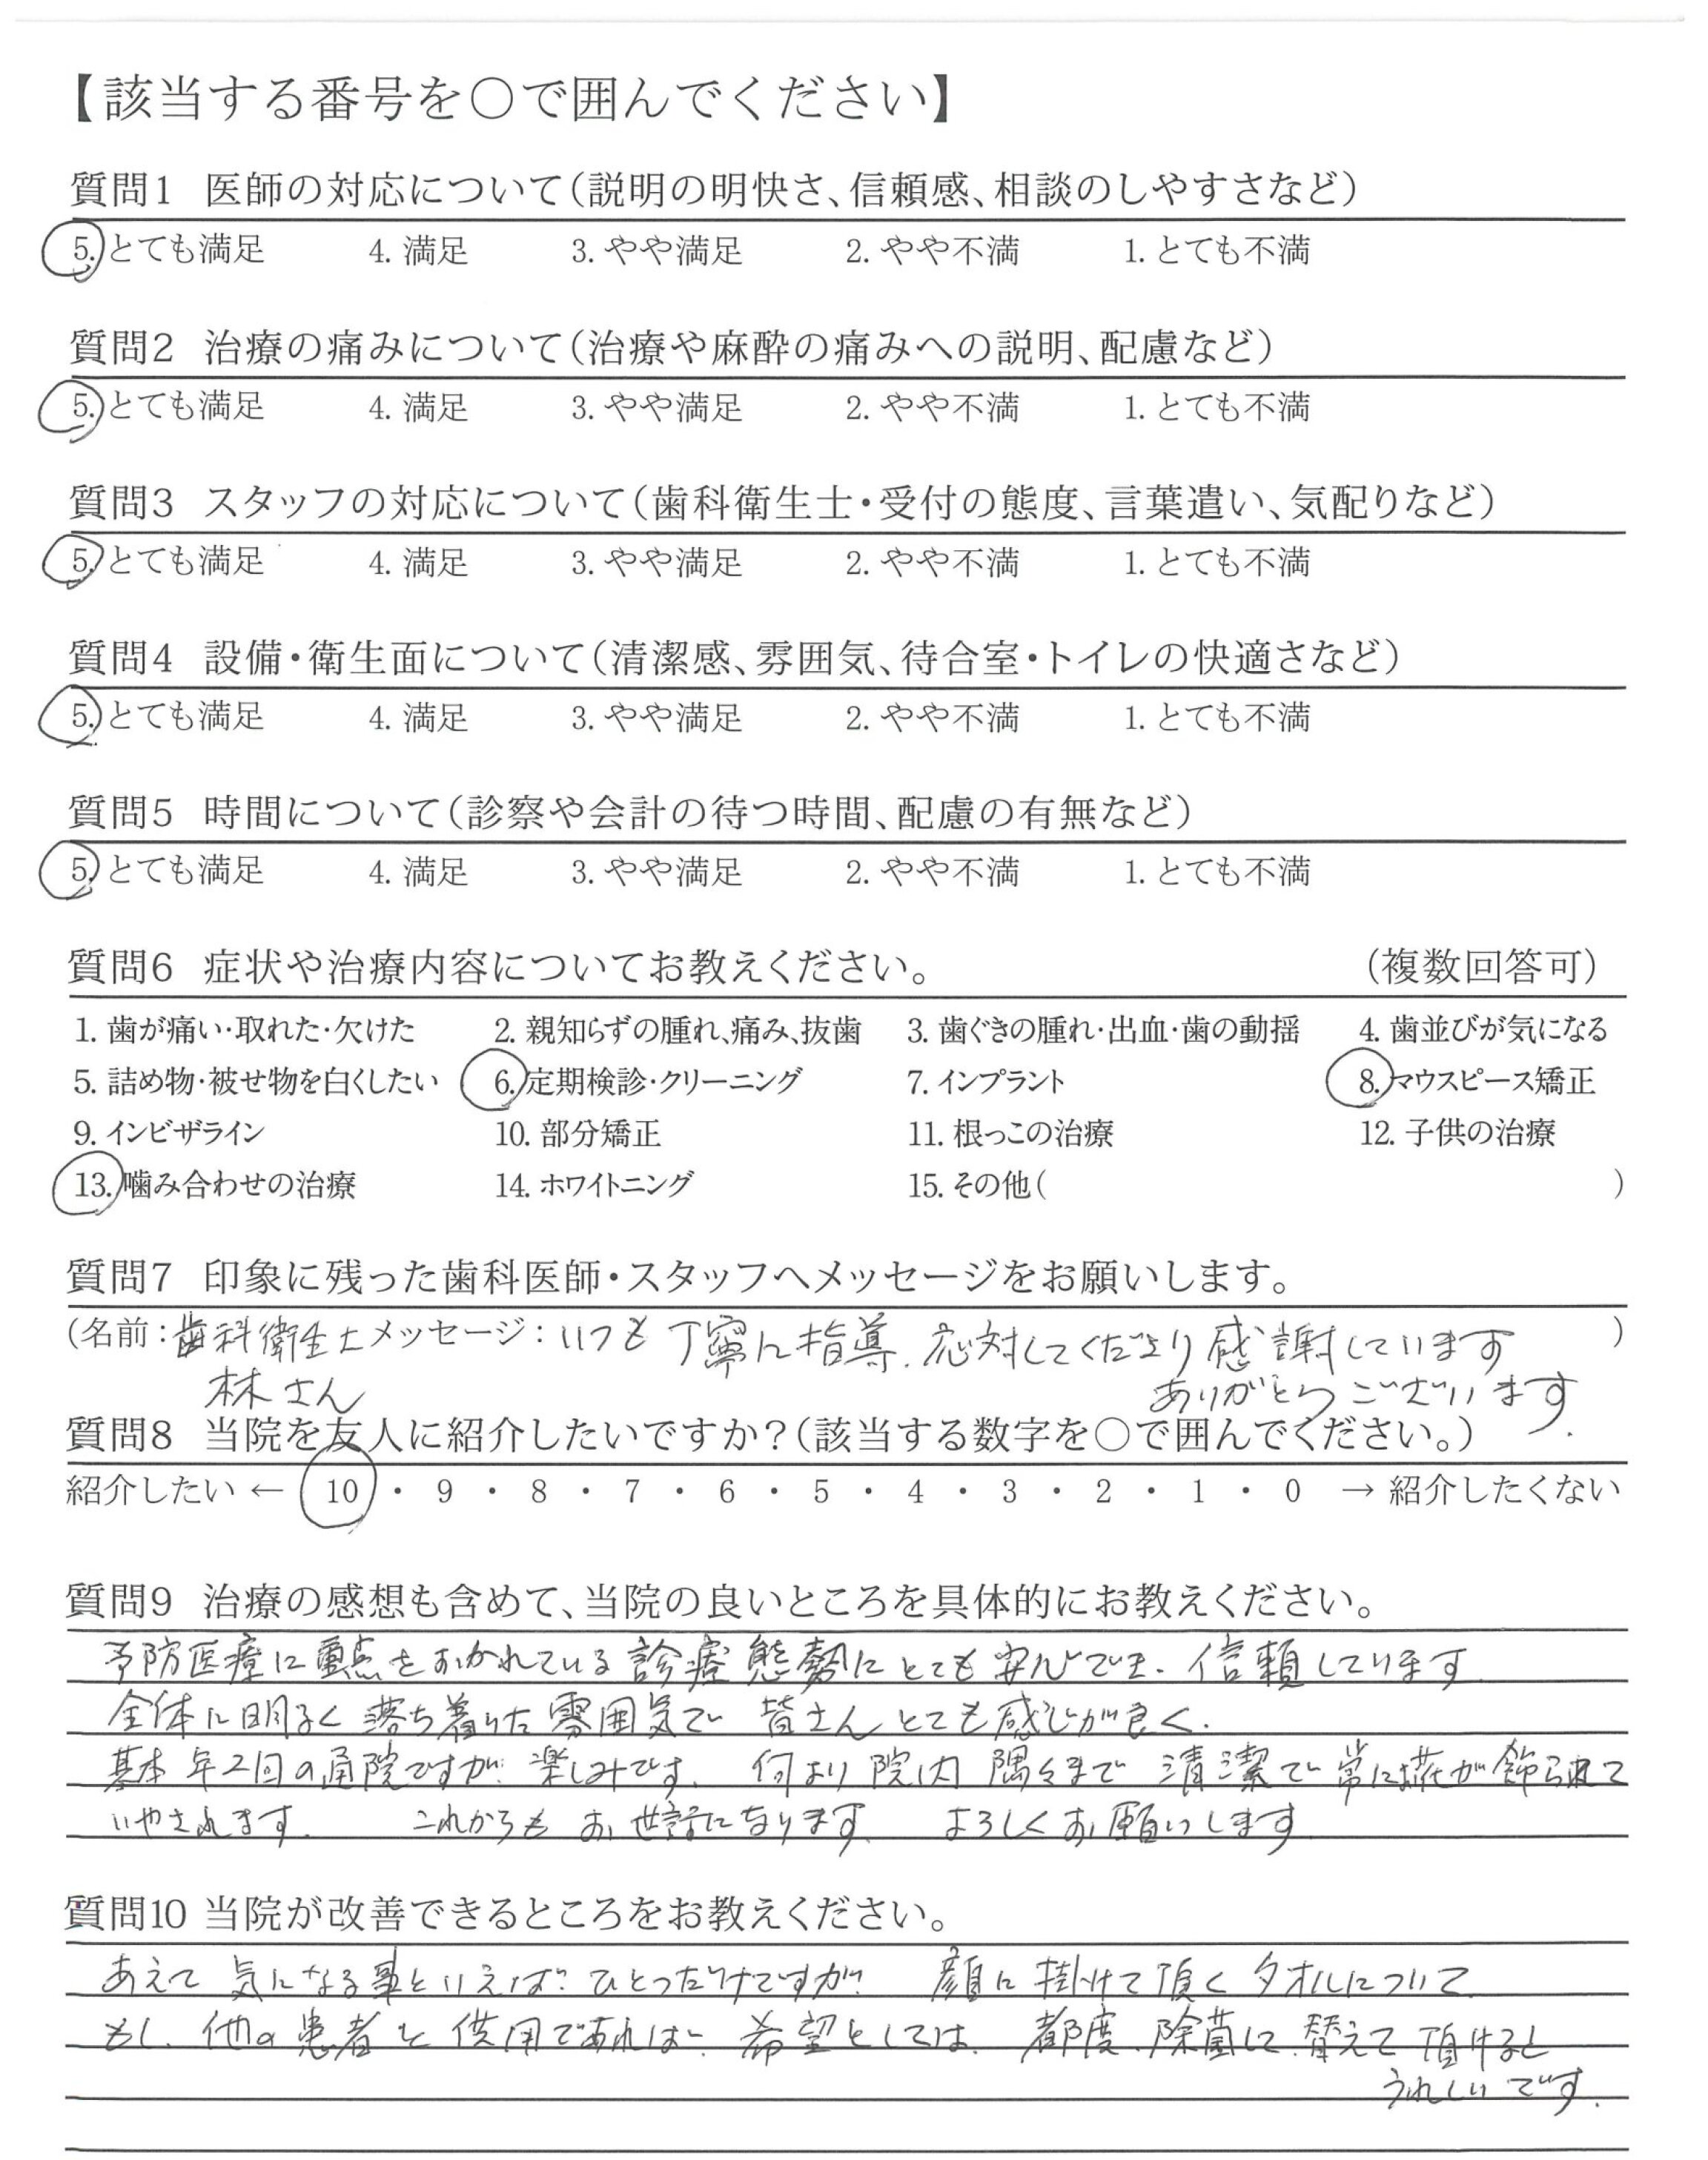 【該当する番号を○で囲んでください】
質問1 医師の対応について（説明の明快さ、信頼感、相談のしやすさなど）
5. とても満足 4. 満足 3. やや満足 2. やや不満 1. とても不満
質問2 治療の痛みについて（治療や麻酔の痛みへの説明、配慮など）
5. とても満足 4. 満足 3. やや満足 2. やや不満 1. とても不満
質問3 スタッフの対応について（歯科衛生士・受付の態度、言葉遣い、気配りなど）
5. とても満足 4. 満足 3. やや満足 2. やや不満 1. とても不満
質問4 設備・衛生面について（清潔感、雰囲気、待合室・トイレの快適さなど）
5. とても満足 4. 満足 3. やや満足 2. やや不満 1. とても不満
質問5 時間について（診察や会計の待つ時間、配慮の有無など）
5. とても満足 4. 満足 3. やや満足 2. やや不満 1. とても不満
質問6 症状や治療内容についてお教えください。 （複数回答可）
1. 歯が痛い・取れた・欠けた 2. 親知らずの腫れ、痛み、抜歯 3. 歯ぐきの腫れ・出血・歯の動揺 4. 歯並びが気になる
5. 詰め物・被せ物を白くしたい 6. 定期検診・クリーニング 7. インプラント 8. マウスピース矯正
9. インビザライン 10. 部分矯正 11. 根っこの治療 12. 子供の治療
13. 噛み合わせの治療 14. ホワイトニング 15. その他（ ）
質問7 印象に残った歯科医師・スタッフへメッセージをお願いします。
（名前：歯科衛生士 メッセージ：いつも丁寧に指導、応対してくださり感謝しています ）
林さん ありがとうございます。
質問8 当院を友人に紹介したいですか？（該当する数字を○で囲んでください。）
紹介したい ← 10 ・ 9 ・ 8 ・ 7 ・ 6 ・ 5 ・ 4 ・ 3 ・ 2 ・ 1 ・ 0 → 紹介したくない
質問9 治療の感想も含めて、当院の良いところを具体的にお教えください。
予防医療に重点をおかれている診療態勢にとても安心でき、信頼しています。
全体に明るく落ち着いた雰囲気で皆さんとても感じが良く、
基本年2回の通院ですが、楽しみです。何より院内隅々まで清潔で常に花が飾られて
いやされます。 これからもお世話になります。 よろしくお願いします。
質問10 当院が改善できるところをお教えください。
あえて気になる事といえば、ひとつだけですが、顔に掛けて頂くタオルについて
もし、他の患者と供用であれば、希望としては、都度、除菌して、替えて頂けると
うれしいです。